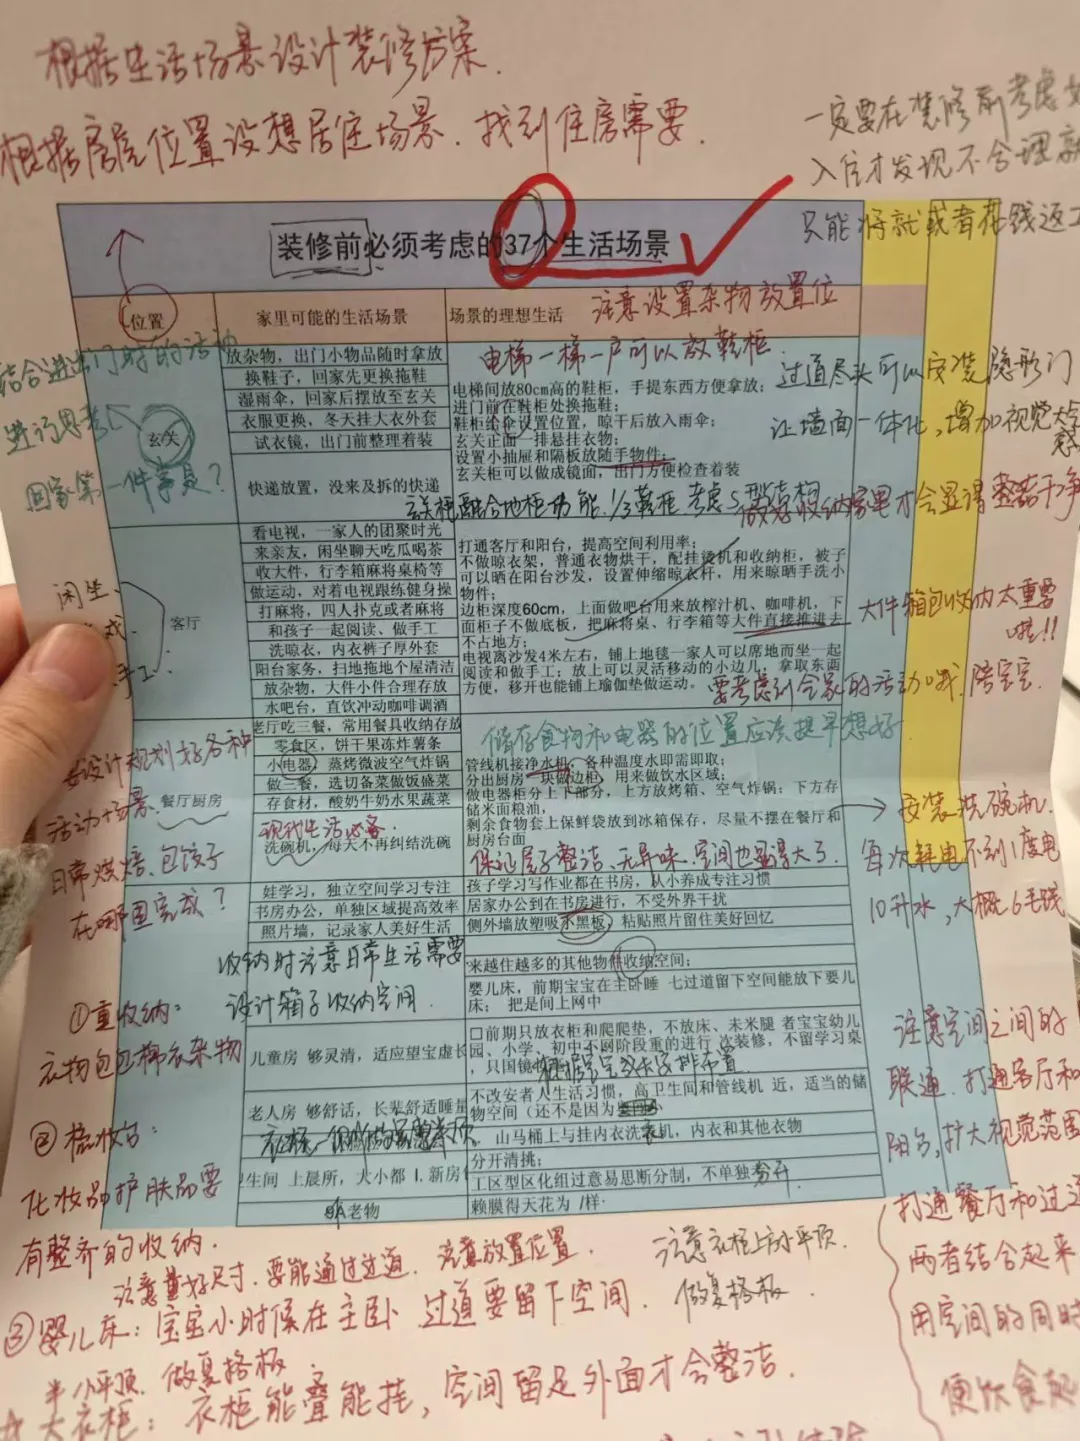 根据生活场景设计装修方案.
根据房屋位置设想居住场景.找到住房需要.
一定要在装修前考虑
入住才发现不合理
只能将就或者花钱返工
装修前必须考虑的37个生活场景
位置
家里可能的生活场景
场景的理想生活
注意设置杂物放置位
结合进出门时的活动
进行思考
回家第一件事是?
玄关
放杂物，出门小物品随时拿放
换鞋子，回家先更换拖鞋
湿雨伞，回家后摆放至玄关
衣服更换，冬天挂大衣外套
试衣镜，出门前整理着装
快递放置，没来及拆的快递
电梯一梯一户可以放鞋柜
电梯间放80cm高的鞋柜，手提东西方便拿放；
进门前在鞋柜处换拖鞋；
鞋柜给伞设置位置，晾干后放入雨伞；
玄关正面一排悬挂衣物；
设置小抽屉和隔板放随手物件；
玄关柜可以做成镜面，出门方便检查着装
过道尽头可以安装隐形门
让墙面一体化,增加视觉
家里才会显得整洁干净
闲坐、
手工、
客厅
看电视，一家人的团聚时光
来亲友，闲坐聊天吃瓜喝茶
收大件，行李箱麻将桌椅等
做运动，对着电视跟练健身操
打麻将，四人扑克或者麻将
和孩子一起阅读、做手工
洗晾衣，内衣裤子厚外套
阳台家务，扫地拖地个屋清洁
放杂物，大件小件合理存放
水吧台，直饮冲动咖啡调酒
打通客厅和阳台，提高空间利用率；
不做晾衣架，普通衣物烘干，配挂烫机和收纳柜，被子
可以晒在阳台沙发，设置伸缩晾衣杆，用来晾晒手洗小
物件；
边柜深度60cm，上面做吧台用来放榨汁机、咖啡机，下
面柜子不做底板，把麻将桌、行李箱等大件直接推进去
不占地方；
电视离沙发4米左右，铺上地毯一家人可以席地而坐一起
阅读和做手工；放上可以灵活移动的小边儿，拿取东西
方便，移开也能铺上瑜伽垫做运动。
大件箱包收纳太重要
啦!!
要考虑到全家的活动哦.陪宝宝.
要设计规划好各种
活动场景.
日常烘焙、包饺子
在哪里完成?
餐厅厨房
老厅吃三餐，常用餐具收纳存放
零食区，饼干果冻炸薯条
小电器，蒸烤微波空气炸锅
做三餐，选切备菜做饭盛菜
存食材，酸奶牛奶水果蔬菜
现代生活必备
洗碗机，每天不再纠结洗碗
储存食物和电器的位置应该提早想好
管线机接净水机，各种温度水即需即取；
分出厨房一块做边柜，用来做饮水区域；
做电器柜分上下部分，上方放烤箱、空气炸锅；下方存
储米面粮油，
剩余食物套上保鲜袋放到冰箱保存，尽量不摆在餐厅和
厨房台面
保证屋子整洁、无异味.空间也显得大了.
安装洗碗机.
每次耗电不到1度电
10升水,大概6毛钱
娃学习，独立空间学习专注
书房办公，单独区域提高效率
照片墙，记录家人美好生活
孩子学习写作业都在书房，从小养成专注习惯
居家办公到在书房进行，不受外界干扰
侧外墙放塑吸水黑板，粘贴照片留住美好回忆
收纳时注意日常生活需要
设计箱子收纳空间.
来越住越多的其他物件收纳空间；
婴儿床，前期宝宝在主卧睡 七过道留下空间能放下要儿
床； 把是间上网中
儿童房 够灵清，适应望宝虚长
口前期只放衣柜和爬爬垫，不放床、未米腿 者宝宝幼儿
园、小学、初中不网阶段重的进行 次装修，不留学习桌
，只国镜
老人房 够舒话，长辈舒适睡量
不改安者人生活习惯，高卫生间和管线机 近，适当的储
物空间（还不是因为
山马桶上与挂内衣洗衣机，内衣和其他衣物
分开清挑；
卫生间 上晨所，大小都 1.新房
工区型区化组过意易思断分制，不单独分开
老物
赖膜得天花为 /样·
①重收纳:
衣物包包棉衣杂物
②梳妆台:
化妆品护肤品要
有整齐的收纳.
注意空间之间的
联通.打通客厅和
阳台,扩大视觉范围
打通餐厅和过道
两者结合起来
用空间的同时
便饮食起
注意量好尺寸.要能通过过道. 注意放置位置.
注意衣柜上方小平顶.
做复格板.
③婴儿床: 宝宝小时候在主卧 过道要留下空间.
半小平顶. 做复格板
大衣柜: 衣柜能叠能挂, 空间留足外面才会整洁.